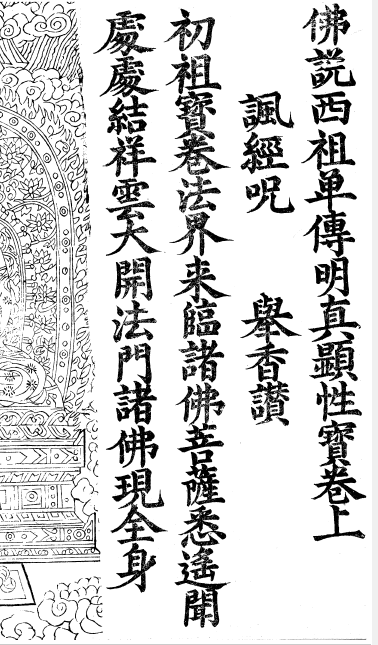 佛説西祖单傳明真顯性寳卷上
諷經呪　舉香讃
初祖寳卷法界来臨諸佛菩薩悉遙聞
處處結祥雲大開法門諸佛現全身